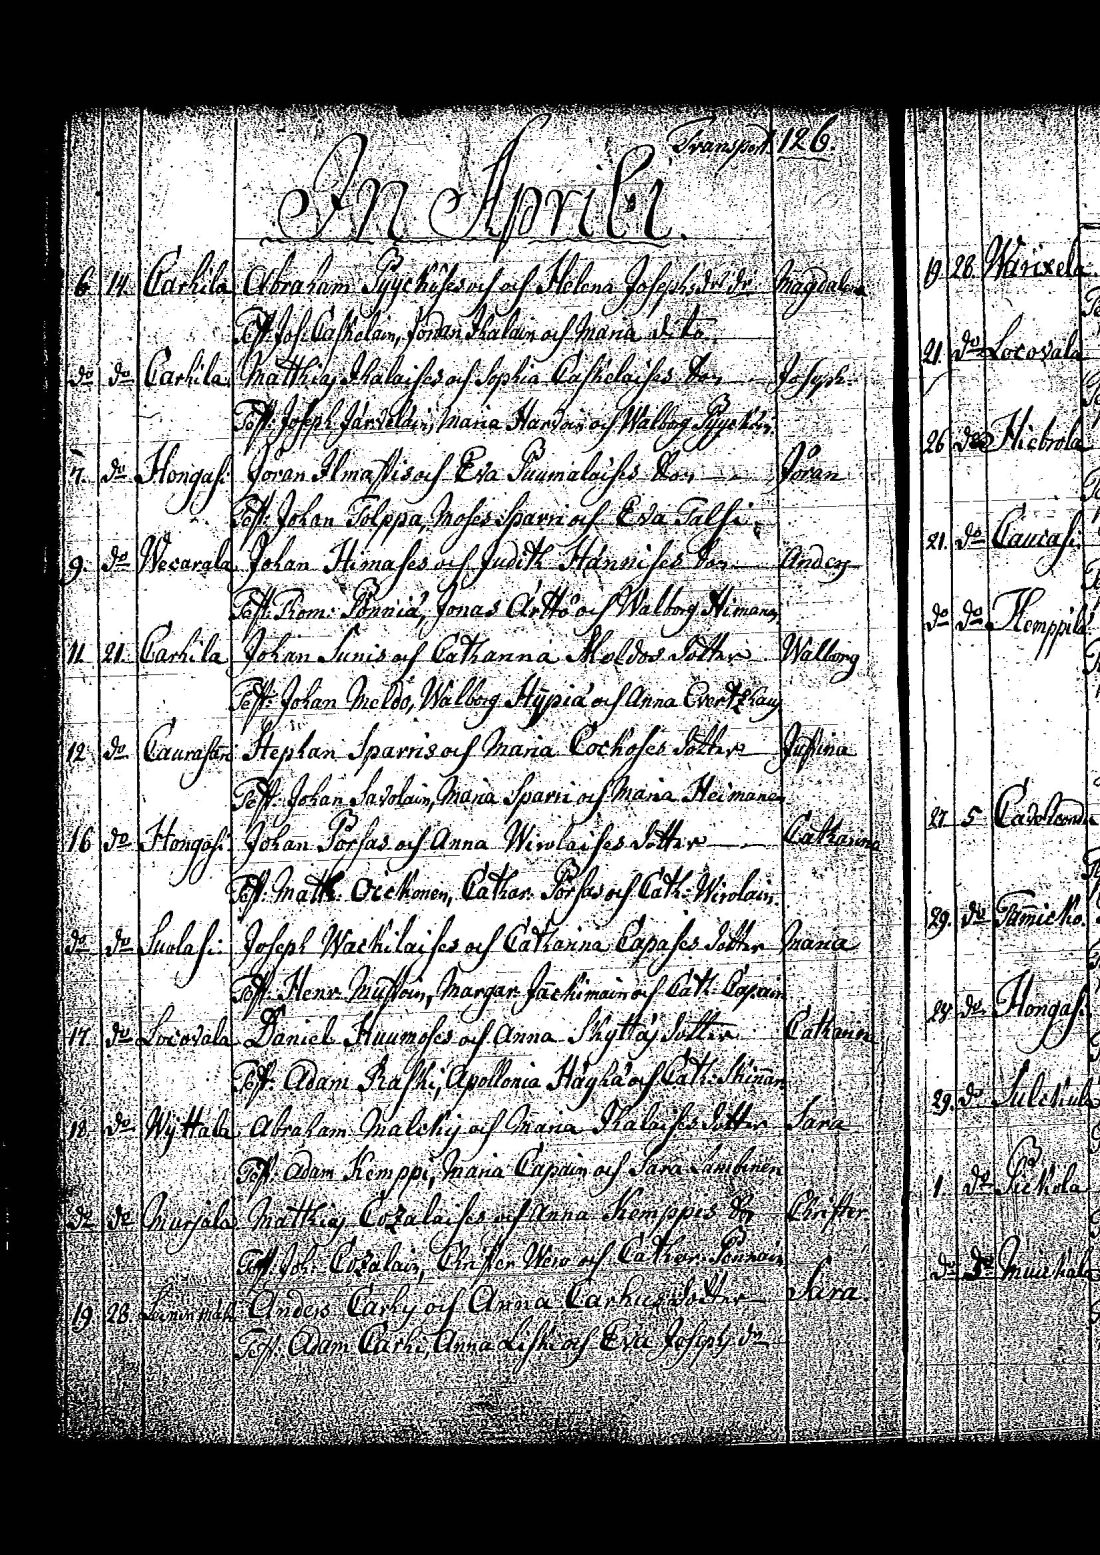 Transport 126.
In Aprili.
6 14 Carhila Abraham Pyyckises och Helena Josephsdr dr Magdalena
Test: Joh: Caskelain, Jöran Ihalain och Maria dito
do do Carhila Matthias Ihalaises och Sophia Caskelaises Son Joseph
Test: Joseph Järveläin, Maria Harvoin och Walborg Pyycköin
7. do Hongasi: Jöran Ilmastis och Eva Puumalaises Son Jöran
Test: Johan Tolppa, Moses Sparri och Eva Talsi
9. do Wecarala Johan Himases och Judith Hännises Son Anders
Test: Rom: Pönniä, Jonas Arttö och Walborg Himanen
11 21 Carhila Johan Sunis och Catharina Moldos dotter Walborg
Test: Johan Meldo, Walborg Hypiä och Anna
12 do Caurasari Stephan Sparris och Maria Cockoses dotter Justina
Test: Johan Savolain, Maria Sparri och Maria Heimanen
16 do Hongasi: Johan Porsas och Anna Wirolaises dotter Catharina
Test: Math: Oickonen, Cathar: Porsas och Cath: Wirolain
do do Suolasi: Joseph Wackilaises och Catharina Capases dotter Maria
Test: Henr: Mustoin, Margar: Jäckimain och Cath: Capain
17. do Locovala Daniel Huumoses och Anna Skyttäs dotter Catharin
Test: Adam Raski, Apollonia Häghä och Cath: Skinnar
18 do Wyttala Abraham Malckis och Maria Ihalaises dotter Sara
Test: Adam Kemppi, Maria Capain och Sara Lambinen
do do Mursala Matthias Cozalaises och Anna Kemppis Son Christer
Test: Joh: Cozalain, Christer Wero och Cathar: Pönnain
19. 28. Anders Carhis och Anna Carhus dotter Sara
Test: Adam Carhi, Anna Liski och Eva Josephs dr
19 28. Warixela
21 do Locovala
26 do Hietrola
21. do Caurasi:
do do Kemppilä
27. 5
29. do
28 do Hongasi:
29. do
1. do
do do